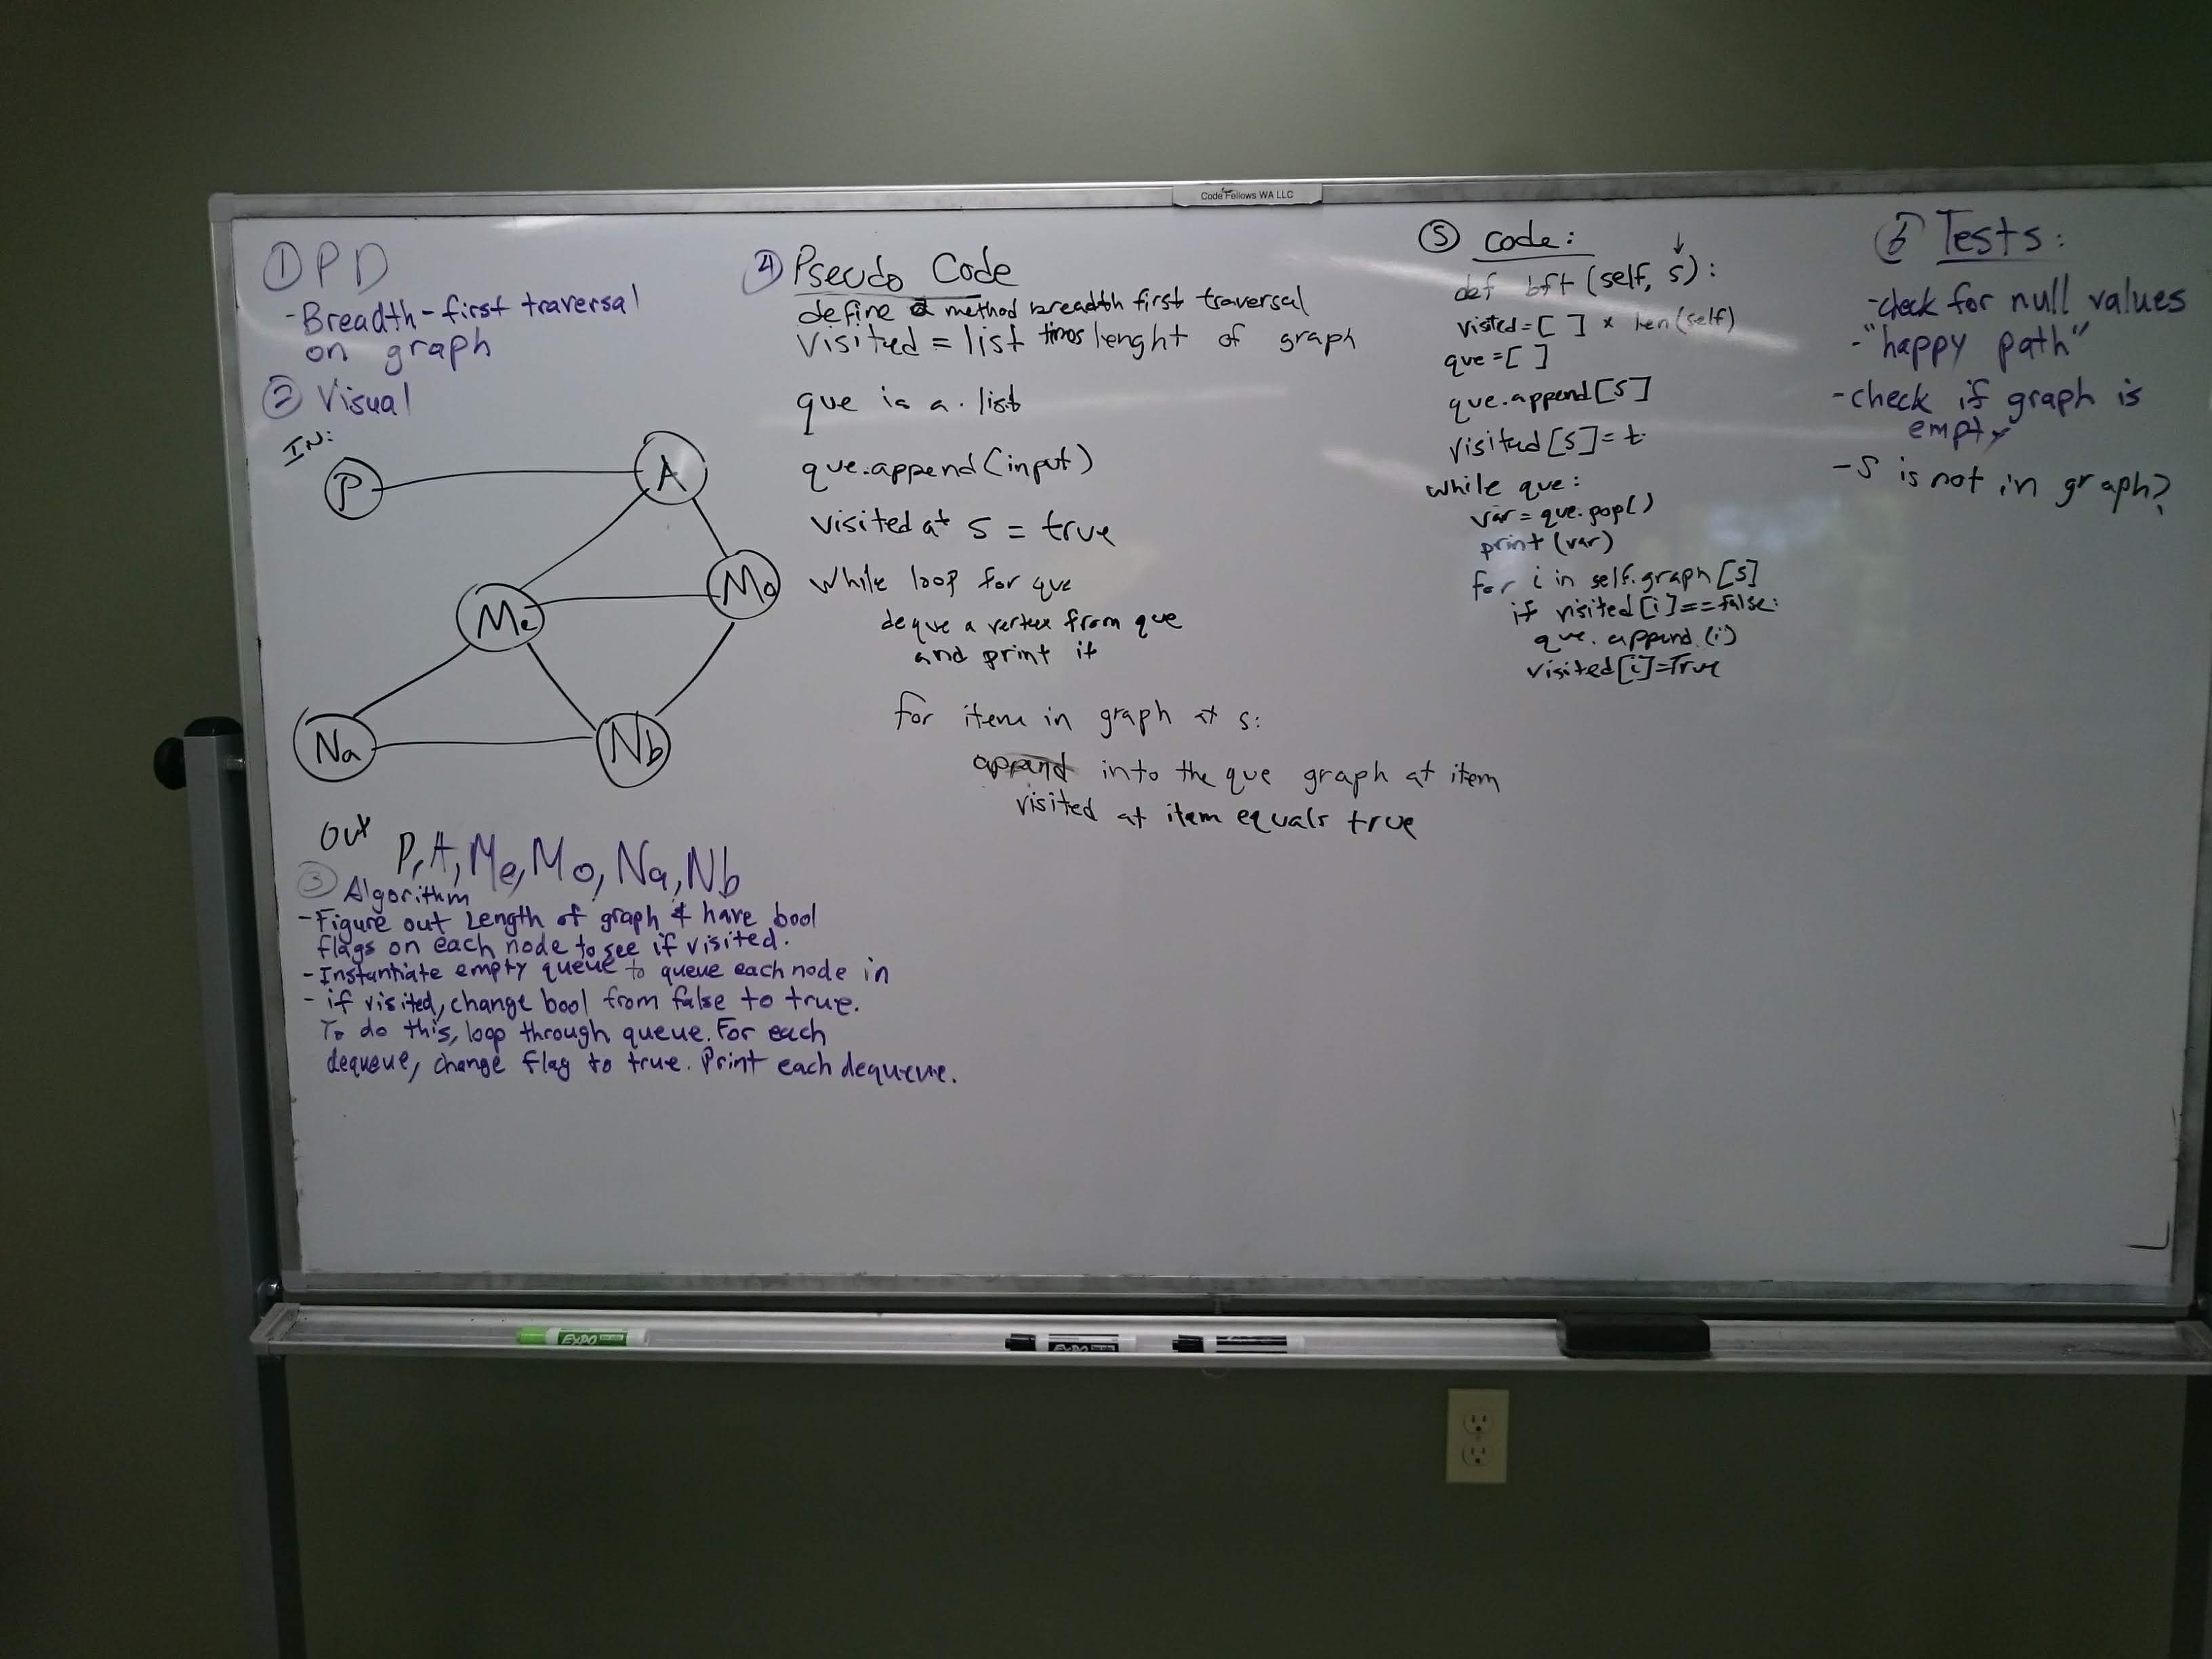 Code Fellows WA LLC
① PD
- Breadth-first traversal
on graph
② Visual
IN:
P
A
Me
Mo
Na
Nb
Out
P, A, Me, Mo, Na, Nb
③ Algorithm
- Figure out Length of graph & have bool
flags on each node to see if visited.
- Instantiate empty queue to queue each node in
- if visited, change bool from false to true.
To do this, loop through queue. For each
dequeue, change flag to true. Print each dequeue.
④ Pseudo Code
define a method breadth first traversal
visited = list times lenght of graph
que is a list
que.append(input)
visited at s = true
While loop for que
deque a vertex from que
and print it
for item in graph at s:
append into the que graph at item
visited at item equals true
⑤ code:
def bft (self, s):
visited = [ ] × len(self)
que = [ ]
que.append[s]
visited[s] = t
while que:
var = que.pop()
print (var)
for i in self.graph[s]
if visited[i]==false:
que.append(i)
visited[i]=True
⑥ Tests:
- check for null values
- "happy path"
- check if graph is
empty
- S is not in graph?
EXPO
EXPO